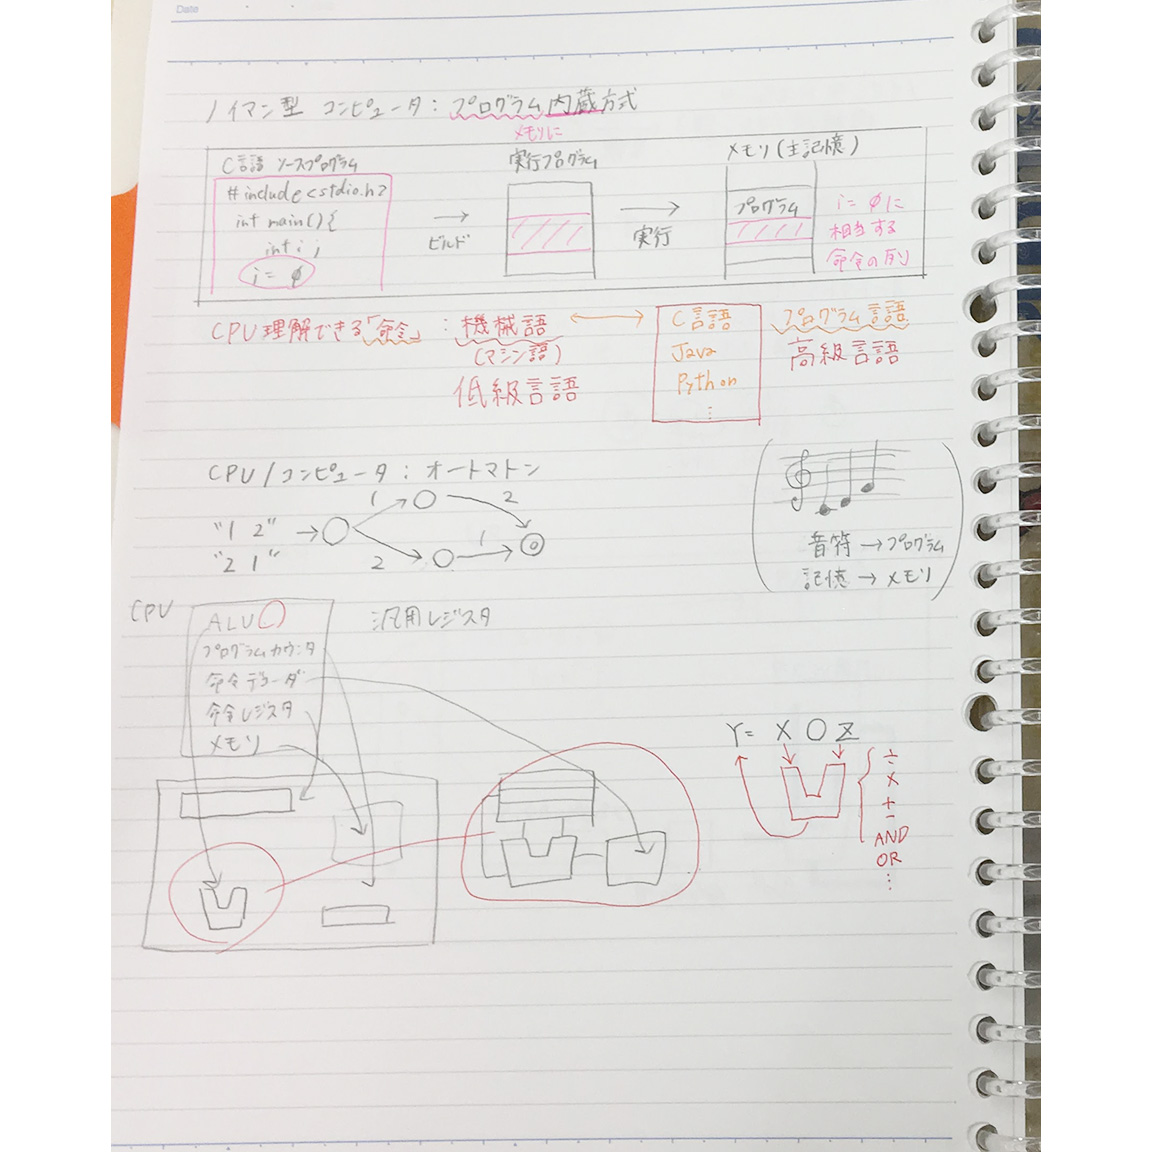 Date
ノイマン型 コンピュータ：プログラム内蔵方式
メモリに
C言語 ソースプログラム
実行プログラム
メモリ(主記憶)
#include<stdio.h>
int main(){
int i;
i= 0
ビルド
実行
プログラム
i= 0に
相当する
命令の列
CPU理解できる「命令」：機械語
(マシン語)
低級言語
C言語
Java
Python
⋮
プログラム言語
高級言語
CPU/コンピュータ：オートマトン
"1 2"
"2 1"
1
2
2
1
音符→プログラム
記憶→メモリ
CPU
ALU
プログラムカウンタ
命令デコーダ
命令レジスタ
メモリ
汎用レジスタ
Y= X ○ Z
÷
×
+
-
AND
OR
⋮